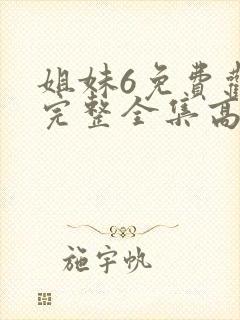 姐妹6免費
完整全集高
施宇帆